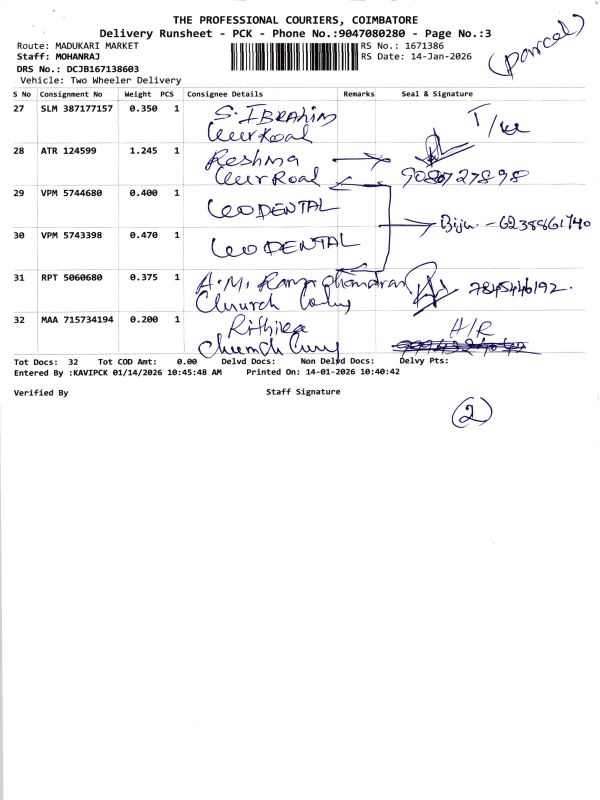 THE PROFESSIONAL COURIERS, COIMBATORE
Delivery Runsheet - PCK - Phone No.:9047080280 - Page No.:3
(parcel)
Route: MADUKARI MARKET RS No.: 1671386
Staff: MOHANRAJ RS Date: 14-Jan-2026
DRS No.: DCJB167138603
Vehicle: Two Wheeler Delivery
S No Consignment No Weight PCS Consignee Details Remarks Seal & Signature
27 SLM 387177157 0.350 1 S. IBRAHIM
28 ATR 124599 1.245 1 Reshma
9080727898
29 VPM 5744680 0.400 1 LEODENTAL
Biju. - 6238861740
30 VPM 5743398 0.470 1 LEODENTAL
31 RPT 5060680 0.375 1 A.M. Ramachandran 7845446192.
Church
32 MAA 715734194 0.200 1 Rithika H/R
Tot Docs: 32 Tot COD Amt: 0.00 Delvd Docs: Non Delvd Docs: Delvy Pts:
Entered By :KAVIPCK 01/14/2026 10:45:48 AM Printed On: 14-01-2026 10:40:42
Verified By Staff Signature
2